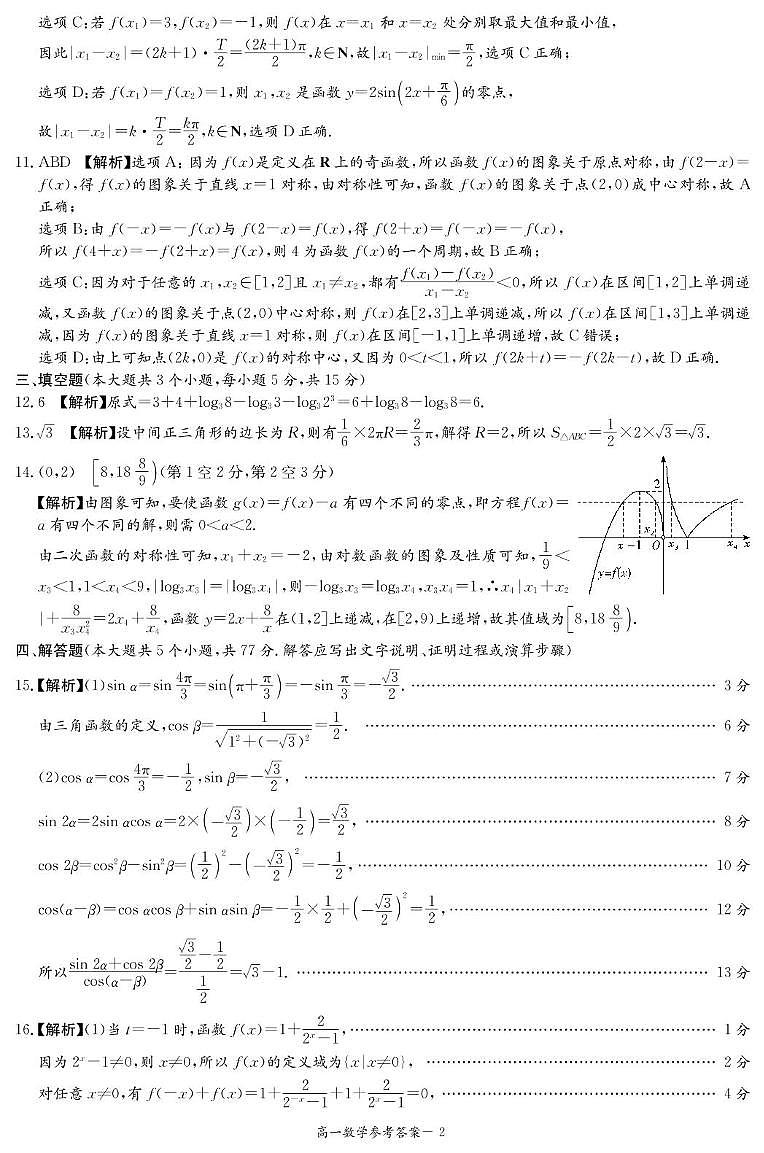 选项 C:若 f(x₁)=3,f(x₂)=-1,则 f(x)在 x=x₁ 和 x=x₂ 处分别取最大值和最小值,
因此|x₁-x₂|=(2k+1)·T/2=(2k+1)π/2,k∈N,故|x₁-x₂|min=π/2,选项 C 正确;
选项 D:若 f(x₁)=f(x₂)=1,则 x₁,x₂ 是函数 y=2sin(2x+π/6)的零点,
故|x₁-x₂|=k·T/2=kπ/2,k∈N,选项 D 正确.
11. ABD 【解析】选项 A: 因为 f(x)是定义在 R 上的奇函数,所以函数 f(x)的图象关于原点对称,由 f(2-x)=
f(x),得 f(x)的图象关于直线 x=1 对称,由对称性可知,函数 f(x)的图象关于点(2,0)成中心对称,故 A
正确;
选项 B:由 f(-x)=-f(x)与 f(2-x)=f(x),得 f(2+x)=f(-x)=-f(x),
所以 f(4+x)=-f(2+x)=f(x),则 4 为函数 f(x)的一个周期,故 B 正确;
选项 C:因为对于任意的 x₁,x₂∈[1,2]且 x₁≠x₂,都有(f(x₁)-f(x₂))/(x₁-x₂)<0,所以 f(x)在区间[1,2]上单调递
减,又函数 f(x)的图象关于点(2,0)中心对称,则 f(x)在[2,3]上单调递减,所以 f(x)在区间[1,3]上单调递
减,因为 f(x)的图象关于直线 x=1 对称,则 f(x)在区间[-1,1]上单调递增,故 C 错误;
选项 D:由上可知点(2k,0)是 f(x)的对称中心,又因为 0<t<1,所以 f(2k+t)=-f(2k-t),故 D 正确.
三、填空题(本大题共 3 个小题,每小题 5 分,共 15 分)
12. 6 【解析】原式=3+4+log₃8-log₃3-log₃2³=6+log₃8-log₃8=6.
13. √3 【解析】设中间正三角形的边长为 R,则有1/6×2πR=2/3π,解得 R=2,所以 S△ABC=1/2×2×√3=√3.
14. (0,2) [8,18 8/9)(第 1 空 2 分,第 2 空 3 分)
【解析】由图象可知,要使函数 g(x)=f(x)-a 有四个不同的零点,即方程 f(x)=
a 有四个不同的解,则需 0<a<2.
由二次函数的对称性可知,x₁+x₂=-2,由对数函数的图象及性质可知,1/9<
x₃<1,1<x₄<9,|log₃x₃|=|log₃x₄|,则-log₃x₃=log₃x₄,x₃x₄=1,∴x₄|x₁+x₂
|+8/(x₃x₄²)=2x₄+8/x₄,函数 y=2x+8/x在(1,2]上递减,在[2,9)上递增,故其值域为[8,18 8/9).
2
x -1 x₂ O x₃ 1 x₄ x
y=f(x)
四、解答题(本大题共 5 个小题,共 77 分.解答应写出文字说明、证明过程或演算步骤)
15.【解析】(1)sin α=sin 4π/3=sin(π+π/3)=-sin π/3=-√3/2. …… 3 分
由三角函数的定义,cos β=1/√(1²+(-√3)²)=1/2. …… 6 分
(2)cos α=cos 4π/3=-1/2,sin β=-√3/2, …… 7 分
sin 2α=2sin αcos α=2×(-√3/2)×(-1/2)=√3/2, …… 8 分
cos 2β=cos²β-sin²β=(1/2)²-(-√3/2)²=-1/2, …… 10 分
cos(α-β)=cos αcos β+sin αsin β=-1/2×1/2+(-√3/2)²=1/2, …… 12 分
所以(sin 2α+cos 2β)/cos(α-β)=(√3/2-1/2)/(1/2)=√3-1. …… 13 分
16.【解析】(1)当 t=-1 时,函数 f(x)=1+2/(2ˣ-1), …… 1 分
因为 2ˣ-1≠0,则 x≠0,所以 f(x)的定义域为{x|x≠0}, …… 2 分
对任意 x≠0,有 f(-x)+f(x)=1+2/(2⁻ˣ-1)+1+2/(2ˣ-1)=0, …… 4 分
高一数学参考答案－ 2